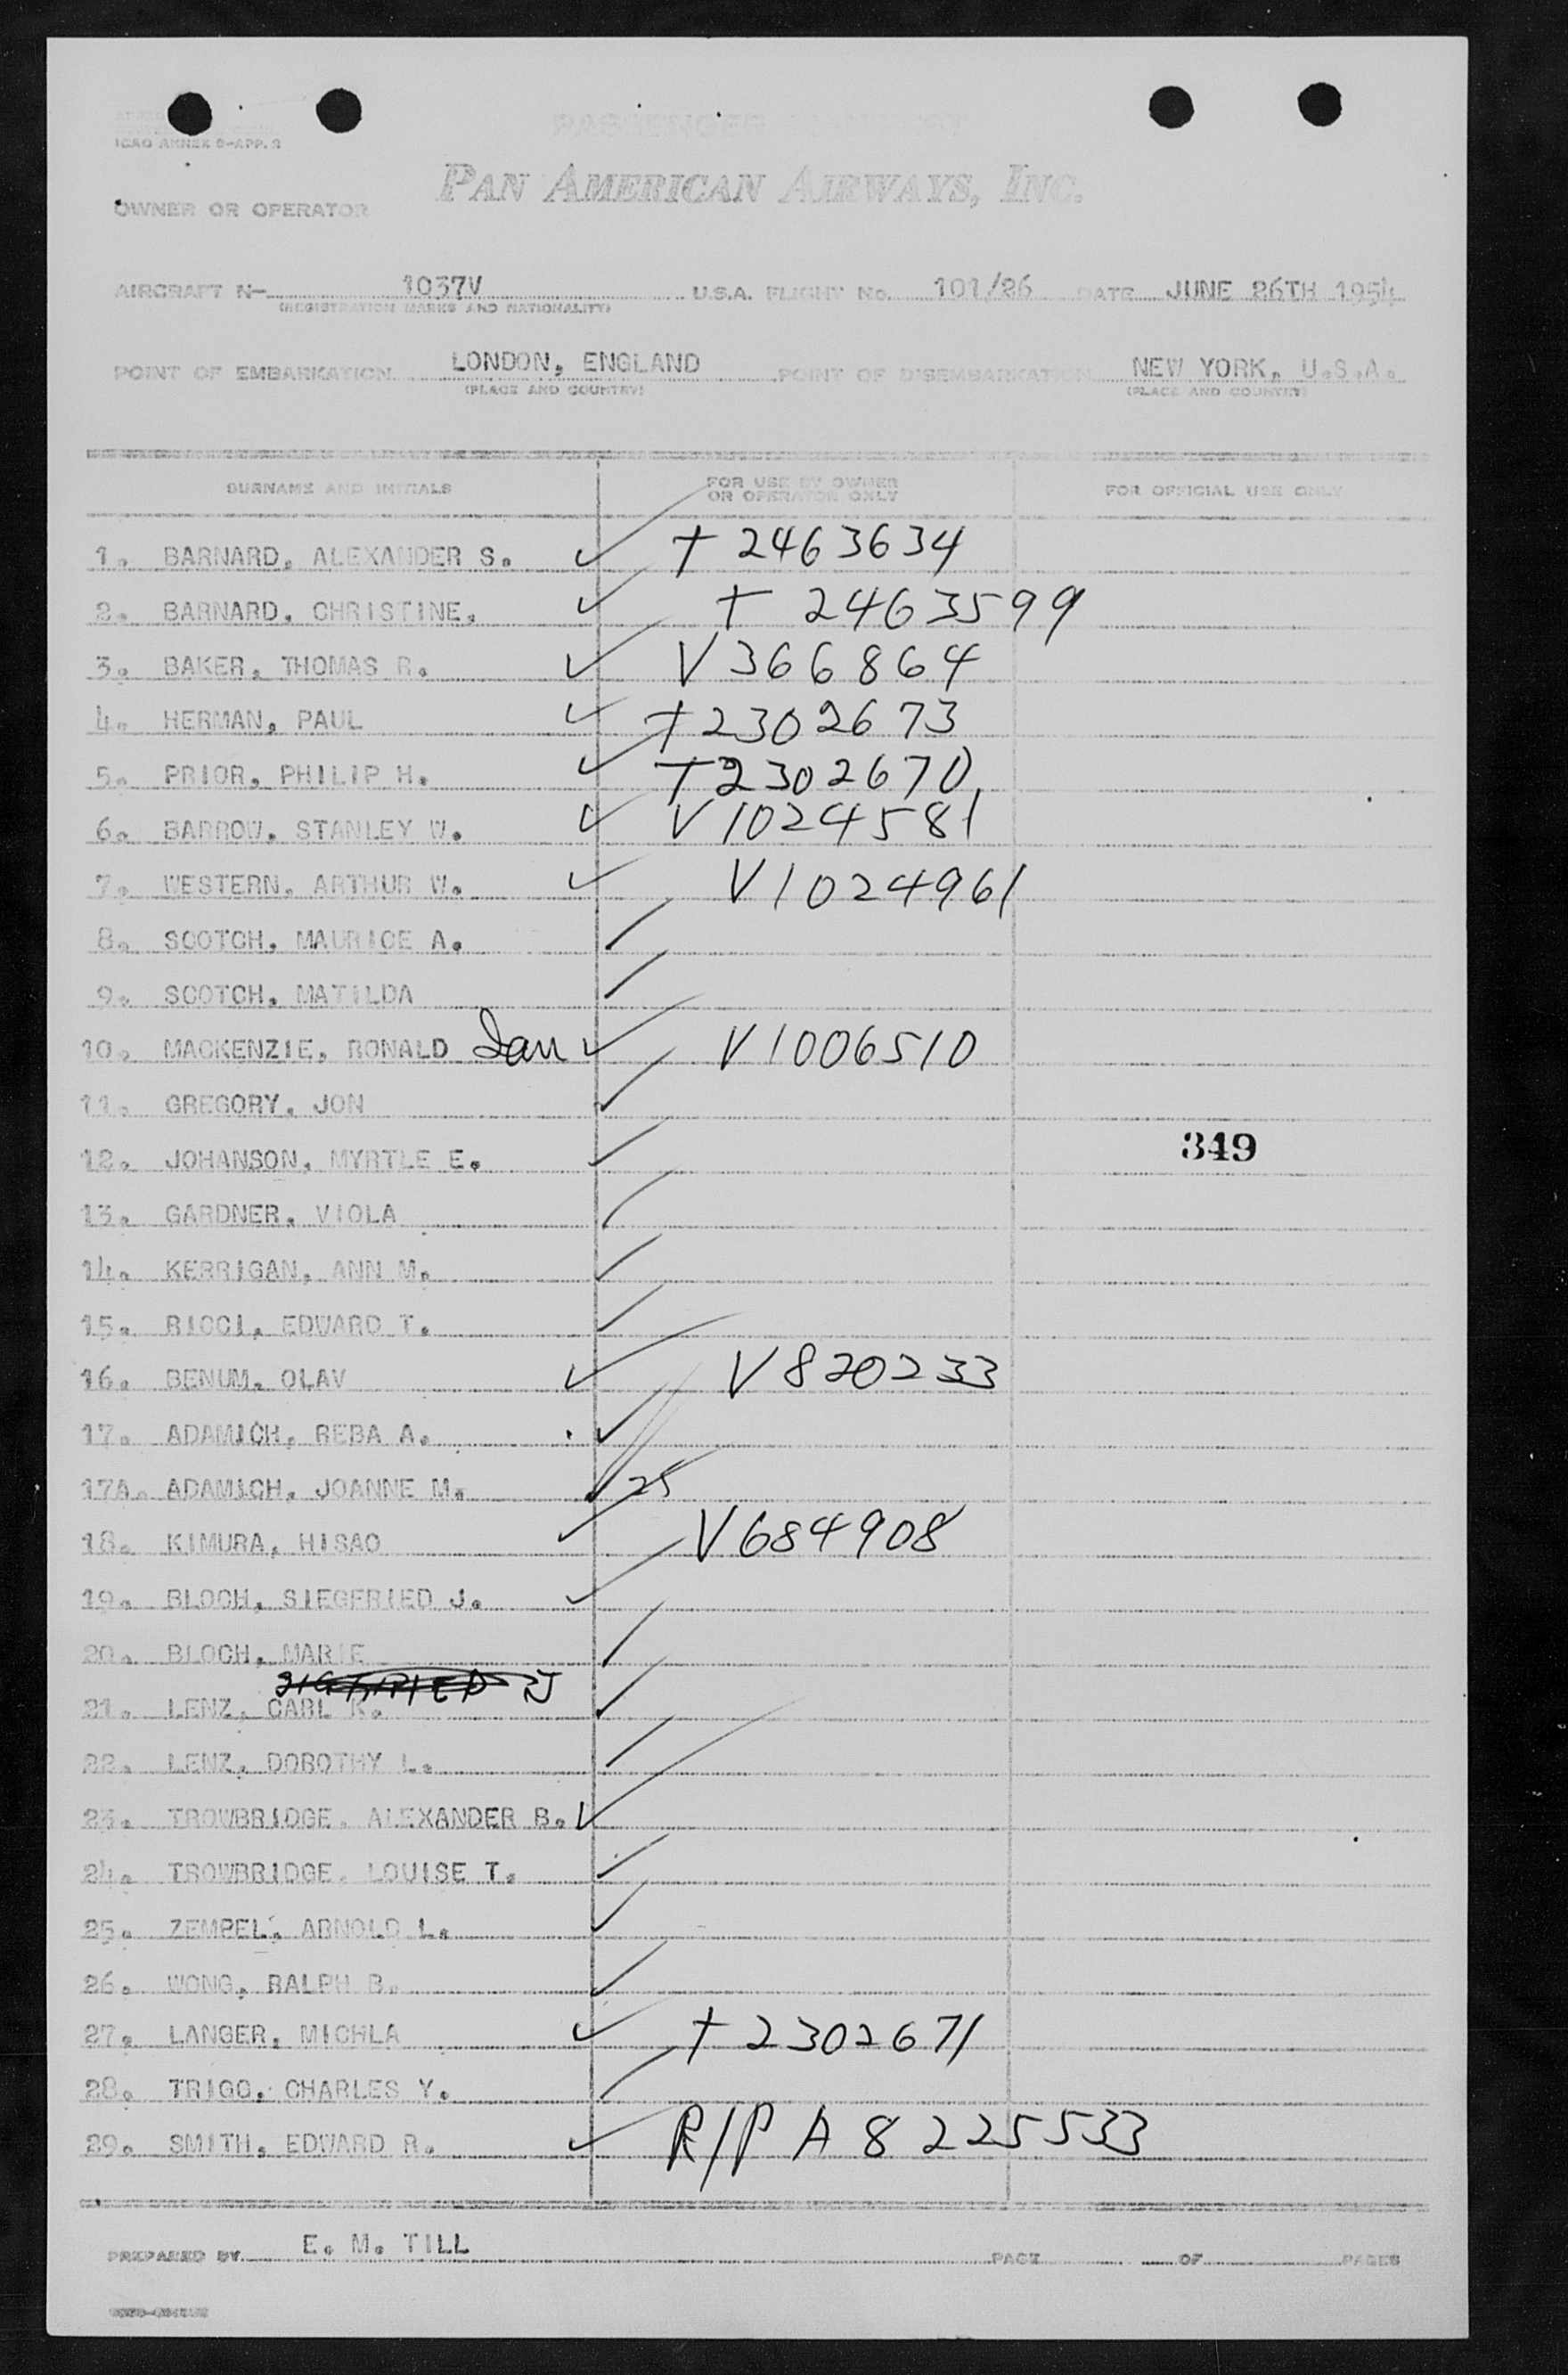 PASSENGER MANIFEST
ICAO ANNEX 9-APP. 3
PAN AMERICAN AIRWAYS, INC.
OWNER OR OPERATOR
AIRCRAFT N- 1037V U.S.A. FLIGHT No. 101/26 DATE JUNE 26TH 1954
(REGISTRATION MARKS AND NATIONALITY)
POINT OF EMBARKATION LONDON, ENGLAND POINT OF DISEMBARKATION NEW YORK, U.S.A.
(PLACE AND COUNTRY) (PLACE AND COUNTRY)
SURNAME AND INITIALS FOR USE BY OWNER OR OPERATOR ONLY FOR OFFICIAL USE ONLY
1. BARNARD, ALEXANDER S. ✓ T 2463634
2. BARNARD, CHRISTINE. ✓ T 2463599
3. BAKER, THOMAS R. ✓ V366864
4. HERMAN, PAUL ✓ T2302673
5. PRIOR, PHILIP H. ✓ T2302670
6. BARROW, STANLEY W. ✓ V1024581
7. WESTERN, ARTHUR W. ✓ V1024961
8. SCOTCH, MAURICE A. ✓
9. SCOTCH, MATILDA ✓
10. MACKENZIE, RONALD Ian ✓ V1006510
11. GREGORY, JON ✓
12. JOHANSON, MYRTLE E. ✓ 349
13. GARDNER, VIOLA ✓
14. KERRIGAN, ANN M. ✓
15. RICCI, EDWARD T. ✓
16. BENUM, OLAV ✓ V820233
17. ADAMICH, REBA A. ✓
17A. ADAMICH, JOANNE M. ✓ 25
18. KIMURA, HISAO ✓ V684908
19. BLOCH, SIEGFRIED J. ✓
20. BLOCH, MARIE ✓
SIGFRIED J
21. LENZ, CARL R. ✓
22. LENZ, DOROTHY L. ✓
23. TROWBRIDGE, ALEXANDER B. ✓
24. TROWBRIDGE, LOUISE T. ✓
25. ZEMPEL, ARNOLD L. ✓
26. WONG, RALPH B. ✓
27. LANGER, MICHLA ✓ T 2302671
28. TRIGG, CHARLES Y. ✓
29. SMITH, EDWARD R. ✓ R/P A8225533
PREPARED BY E. M. TILL PAGE OF PAGES